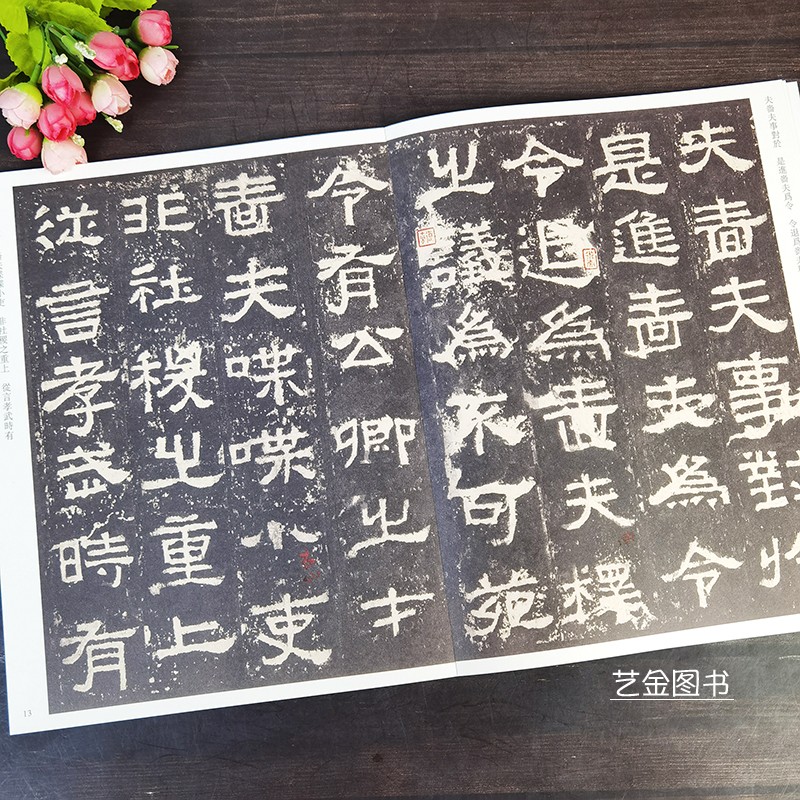 夫嗇夫事對於　是進嗇夫爲令　令退爲嗇夫
夫嗇夫事對於
是進嗇夫為令
令退為嗇夫釋
之議為不可苑
令有公卿之才
嗇夫喋喋小吏
非社稷之重上
從言孝武時有
喋小吏　非社稷之重上　從言孝武時有
13
艺金图书